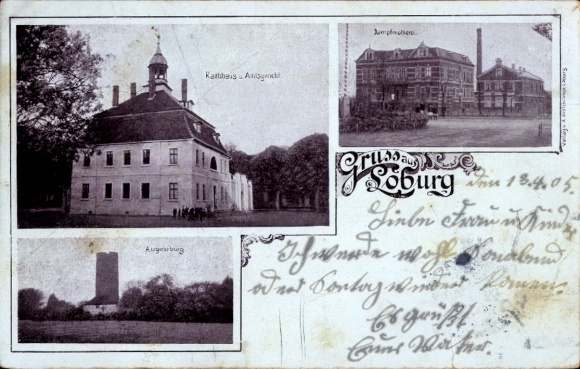 Rathhaus u. Amtsgericht.
Dampfmolkerei.
Gruss aus
Loburg
Augustburg
den 13.4.05
Liebe Frau u Kinder
Ich werde wohl Sonabend
oder Sontag wieder komen.
Es grüßt
Euer Vater.